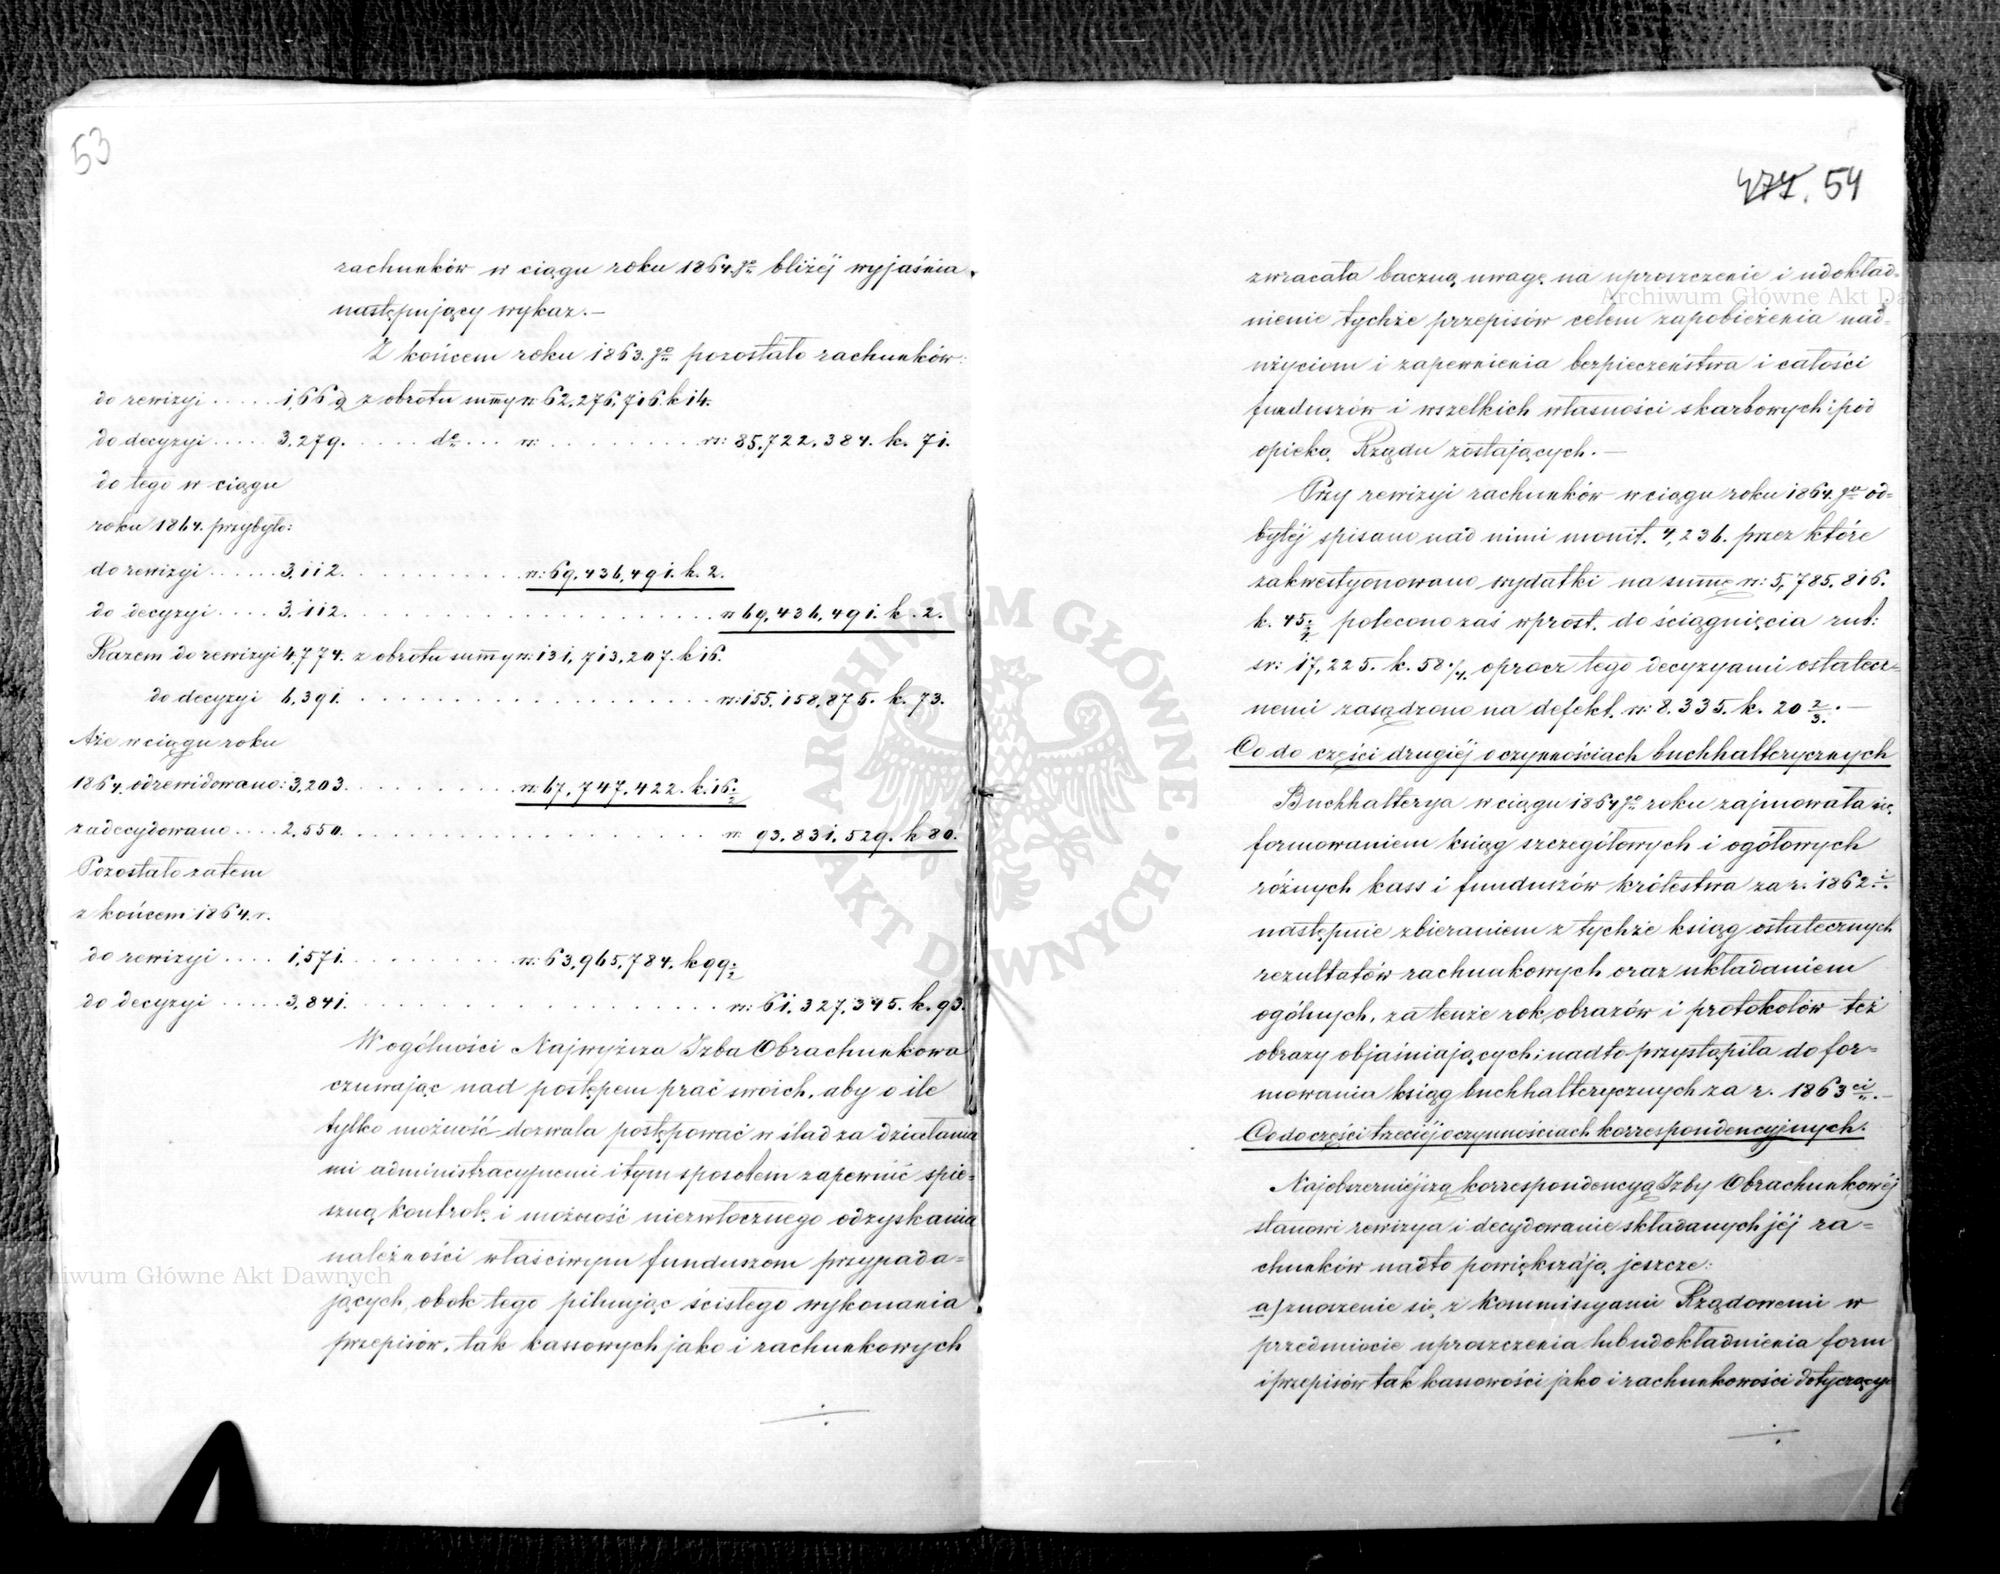 53
rachunków w ciągu roku 1864.go bliżéj wyjaśnia
następujący wykaz.—
Z końcem roku 1863.go pozostało rachunków:
do rewizyi ..... 1,662 z obrotu summy rs: 62,276,716. k 14.
do decyzyi .... 3,279. ..... do ... rs: ......... rs: 85,722,384. k. 71.
do tego w ciągu
roku 1864. przybyło:
do rewizyi ...... 3,112. .......... rs: 69,436,491. k. 2.
do decyzyi .... 3,112. .................... rs 69,436,491. k. 2.
Razem do rewizyi 4,774. z obrotu summy rs: 131,713,207. k 16.
do decyzyi 6,391. .................... rs: 155,158,875. k. 73.
A że w ciągu roku
1864. odrewidowano: 3,203. .......... rs: 67,747,422. k. 16 1/2
zadecydowano .... 2,550. .................... rs 93,831,529. k 80.
Pozostało zatem
z końcem 1864. r.
do rewizyi .... 1,571. .......... rs: 63,965,784. k 99 1/2
do decyzyi ..... 3,841. .................... rs: 61,327,345. k. 93.
W ogólności Najwyższa Izba Obrachunkowa
czuwając nad postępem prac swoich, aby o ile
tylko możność dozwala postępować w ślad za działania
mi administracyjnemi i tym sposobem zapewnić spie=
szną kontrolę i możność niezwłocznego odzyskania
należności właściwym funduszom przypada=
jących, obok tego pilnując ścisłego wykonania
przepisów, tak kassowych jako i rachunkowych
54
zwracała baczną uwagę na uproszczenie i udokład=
nienie tychże przepisów celem zapobieżenia nad=
użyciom i zapewnienia bezpieczeństwa i całości
funduszów i wszelkich własności skarbowych i pod
opieką Rządu zostających.—
Przy rewizyi rachunków w ciągu roku 1864.go od=
bytéj spisano nad nimi monit. 4,236. przez które
zakwestyonowano wydatki na summę rs: 5,785,816.
k. 45 1/2 polecono zaś wprost. do ściągnięcia rub:
sr: 17,225. k. 58 1/4. oprócz tego decyzyami ostatecz=
nemi zasądzono na defekt. rs: 8.335. k. 20 2/3.—
Co do części drugiéj o czynnościach buchhalterycznych
Buchhalterya w ciągu 1864go roku zajmowała się
formowaniem ksiąg szczegółowych i ogółowych
różnych kass i funduszów królestwa za r. 1862. i.
następnie zbieraniem z tychże ksiąg ostatecznych
rezultatów rachunkowych oraz układaniem
ogólnych, za tenże rok, obrazów i protokołów też
obrazy objaśniających; nadto przystąpiła do for=
mowania ksiąg buchhalterycznych za r. 1863ci.—
Co do części trzeciéj o czynnościach korrespondencyjnych.
Najobszerniéjszą korrespondencyą Izby Obrachunkowéj
stanowi rewizya i decydowanie składanych jéj ra=
chunków nadto powiększają jeszcze:
a) znoszenie się z kommissyami Rządowemi w
przedmiocie uproszczenia lub udokładnienia form
i przepisów tak kassowości jako i rachunkowości dotyczący
ARCHIWUM GŁÓWNE AKT DAWNYCH
Archiwum Główne Akt Dawnych
Archiwum Główne Akt Dawnych